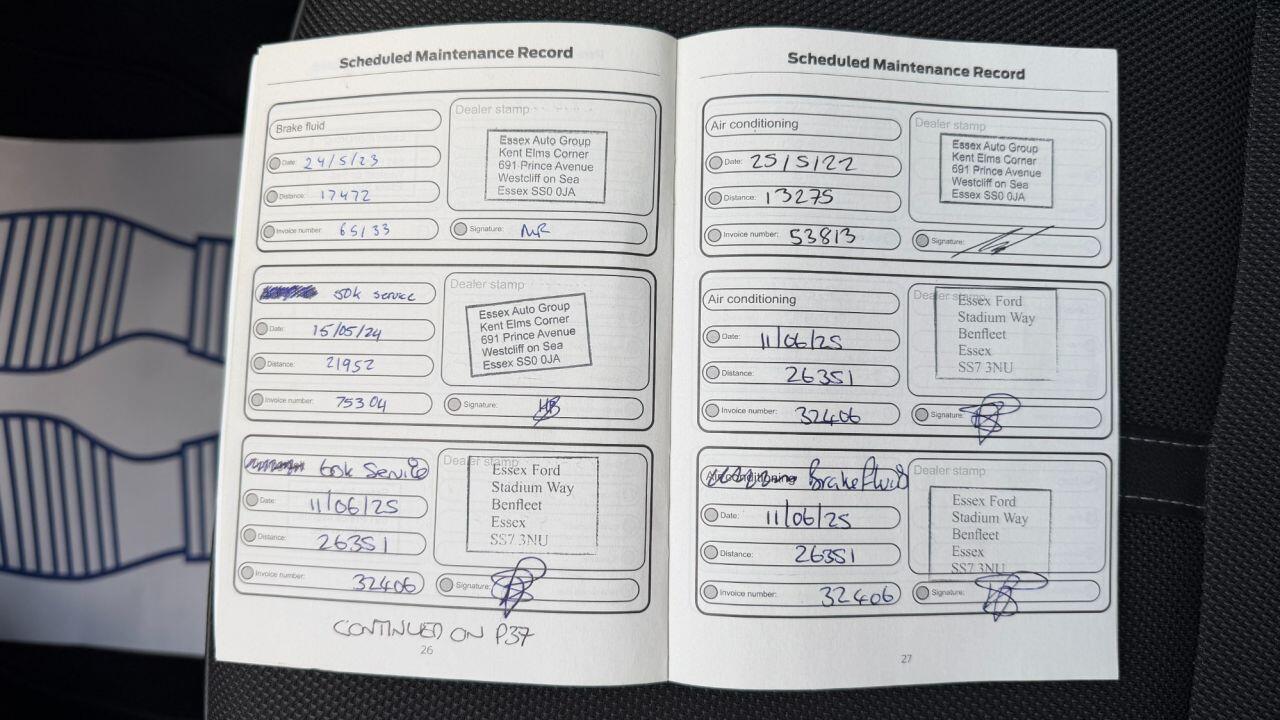 Scheduled Maintenance Record
Brake fluid
Date: 24/5/23
Distance: 17472
Invoice number: 65133
Dealer stamp
Essex Auto Group
Kent Elms Corner
691 Prince Avenue
Westcliff on Sea
Essex SS0 0JA
Signature:
50k service
Date: 15/05/24
Distance: 21952
Invoice number: 75304
Dealer stamp
Essex Auto Group
Kent Elms Corner
691 Prince Avenue
Westcliff on Sea
Essex SS0 0JA
Signature: HB
60k Service
Date: 11/06/25
Distance: 26351
Invoice number: 32406
Dealer stamp
Essex Ford
Stadium Way
Benfleet
Essex
SS7 3NU
Signature:
CONTINUED ON P37
26
Scheduled Maintenance Record
Air conditioning
Date: 25/5/22
Distance: 13275
Invoice number: 53813
Dealer stamp
Essex Auto Group
Kent Elms Corner
691 Prince Avenue
Westcliff on Sea
Essex SS0 0JA
Signature:
Air conditioning
Date: 11/06/25
Distance: 26351
Invoice number: 32406
Dealer stamp
Essex Ford
Stadium Way
Benfleet
Essex
SS7 3NU
Signature:
Air conditioning Brake fluid
Date: 11/06/25
Distance: 26351
Invoice number: 32406
Dealer stamp
Essex Ford
Stadium Way
Benfleet
Essex
SS7 3NU
Signature:
27